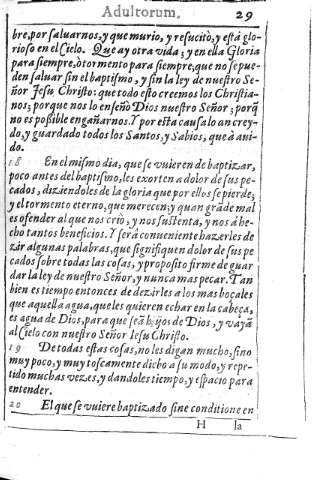 Adultorum. 29
bre, por saluarnos, y que murio, y resucitò, y està glo-
rioso en el Cielo. Que ay otra vida; y en ella Gloria
para siempre, ò tormento para siempre, que no se pue-
den saluar sin el baptismo, y sin la ley de nuestro Se-
ñor Jesu Christo: que todo esto creemos los Christia-
nos; porque nos lo enseñò Dios nuestro Señor; porq̃
no es possible engañarnos. Y por esta causa lo an crey-
do, y guardado todos los Santos, y Sabios, que à aui-
do.
18 En el mismo dia, que se vuieren de baptizar,
poco antes del baptismo, les exorten a dolor de sus pe-
cados, diziendoles de la gloria que por ellos se pierde;
y el tormento eterno, que merecen; y quan grãde mal
es ofender al que nos criò, y nos sustenta, y nos à he-
cho tantos beneficios. Y serà conueniente hazerles de
zir algunas palabras, que signifiquen dolor de sus pe
cados sobre todas las cosas, y proposito firme de guar
dar la ley de nuestro Señor, y nunca mas pecar. Tan
bien es tiempo entonces de dezirles a los mas boçales
que aquella agua, que les quieren echar en la cabeça,
es agua de Dios, para que seã hijos de Dios, y vayã
al Cielo con nuestro Señor Iesu Christo.
19 De todas estas cosas, no les digan mucho, sino
muy poco, y muy toscamente dicho a su modo, y repe-
tido muchas vezes, y dandoles tiempo, y espacio para
entender.
20 El que se vuiere baptizado sine conditione en
H la